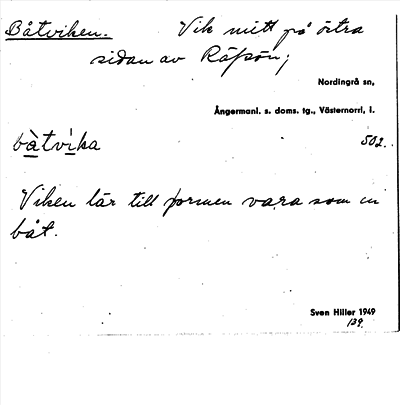 Båtviken. Vik mitt på östra
sidan av Råfsön;
Nordingrå sn,
Ångermanl. s. doms. tg., Västernorrl. l.
bàtvika 502.
Viken lär till formen vara som en
båt.
Sven Hiller 1949
129.